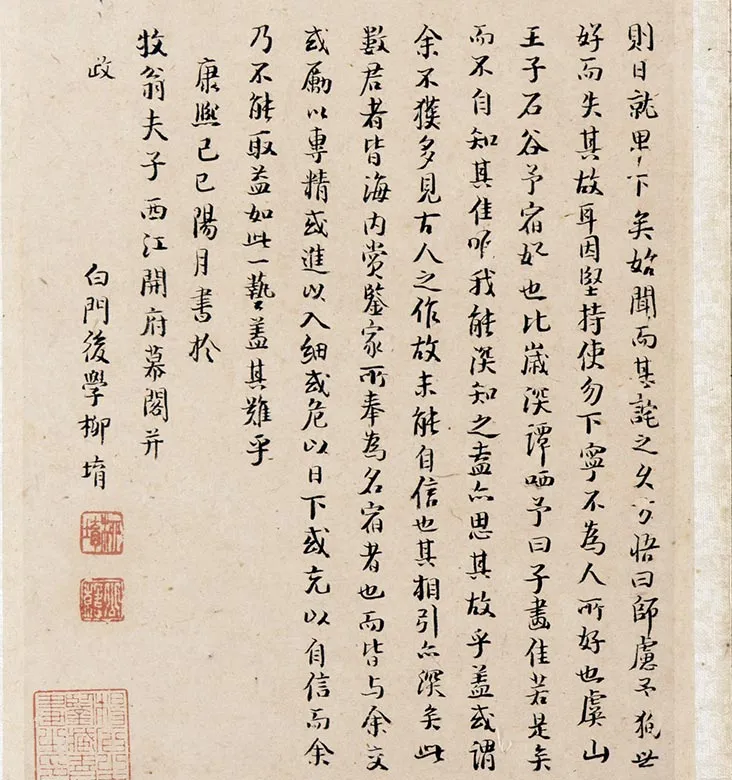 則日就卑下矣始聞而甚詫之久乃悟曰師慮予狥世
好而失其故耳因堅持使勿下寧不為人所好也虞山
王子石谷予宿好也比歲深譚哂予曰子畫佳若是矣
而不自知其佳唯我能深知之盍亦思其故乎蓋或謂
余不獲多見古人之作故未能自信也其相引亦深矣此
數君者皆海内賞鑒家所奉為名宿者也而皆与余交
或勵以專精或進以入細或危以日下或充以自信而余
乃不能取益如此一藝蓋其難乎
康熙己巳陽月書於
牧翁夫子西江開府幕閣并
政
白門後學柳堉